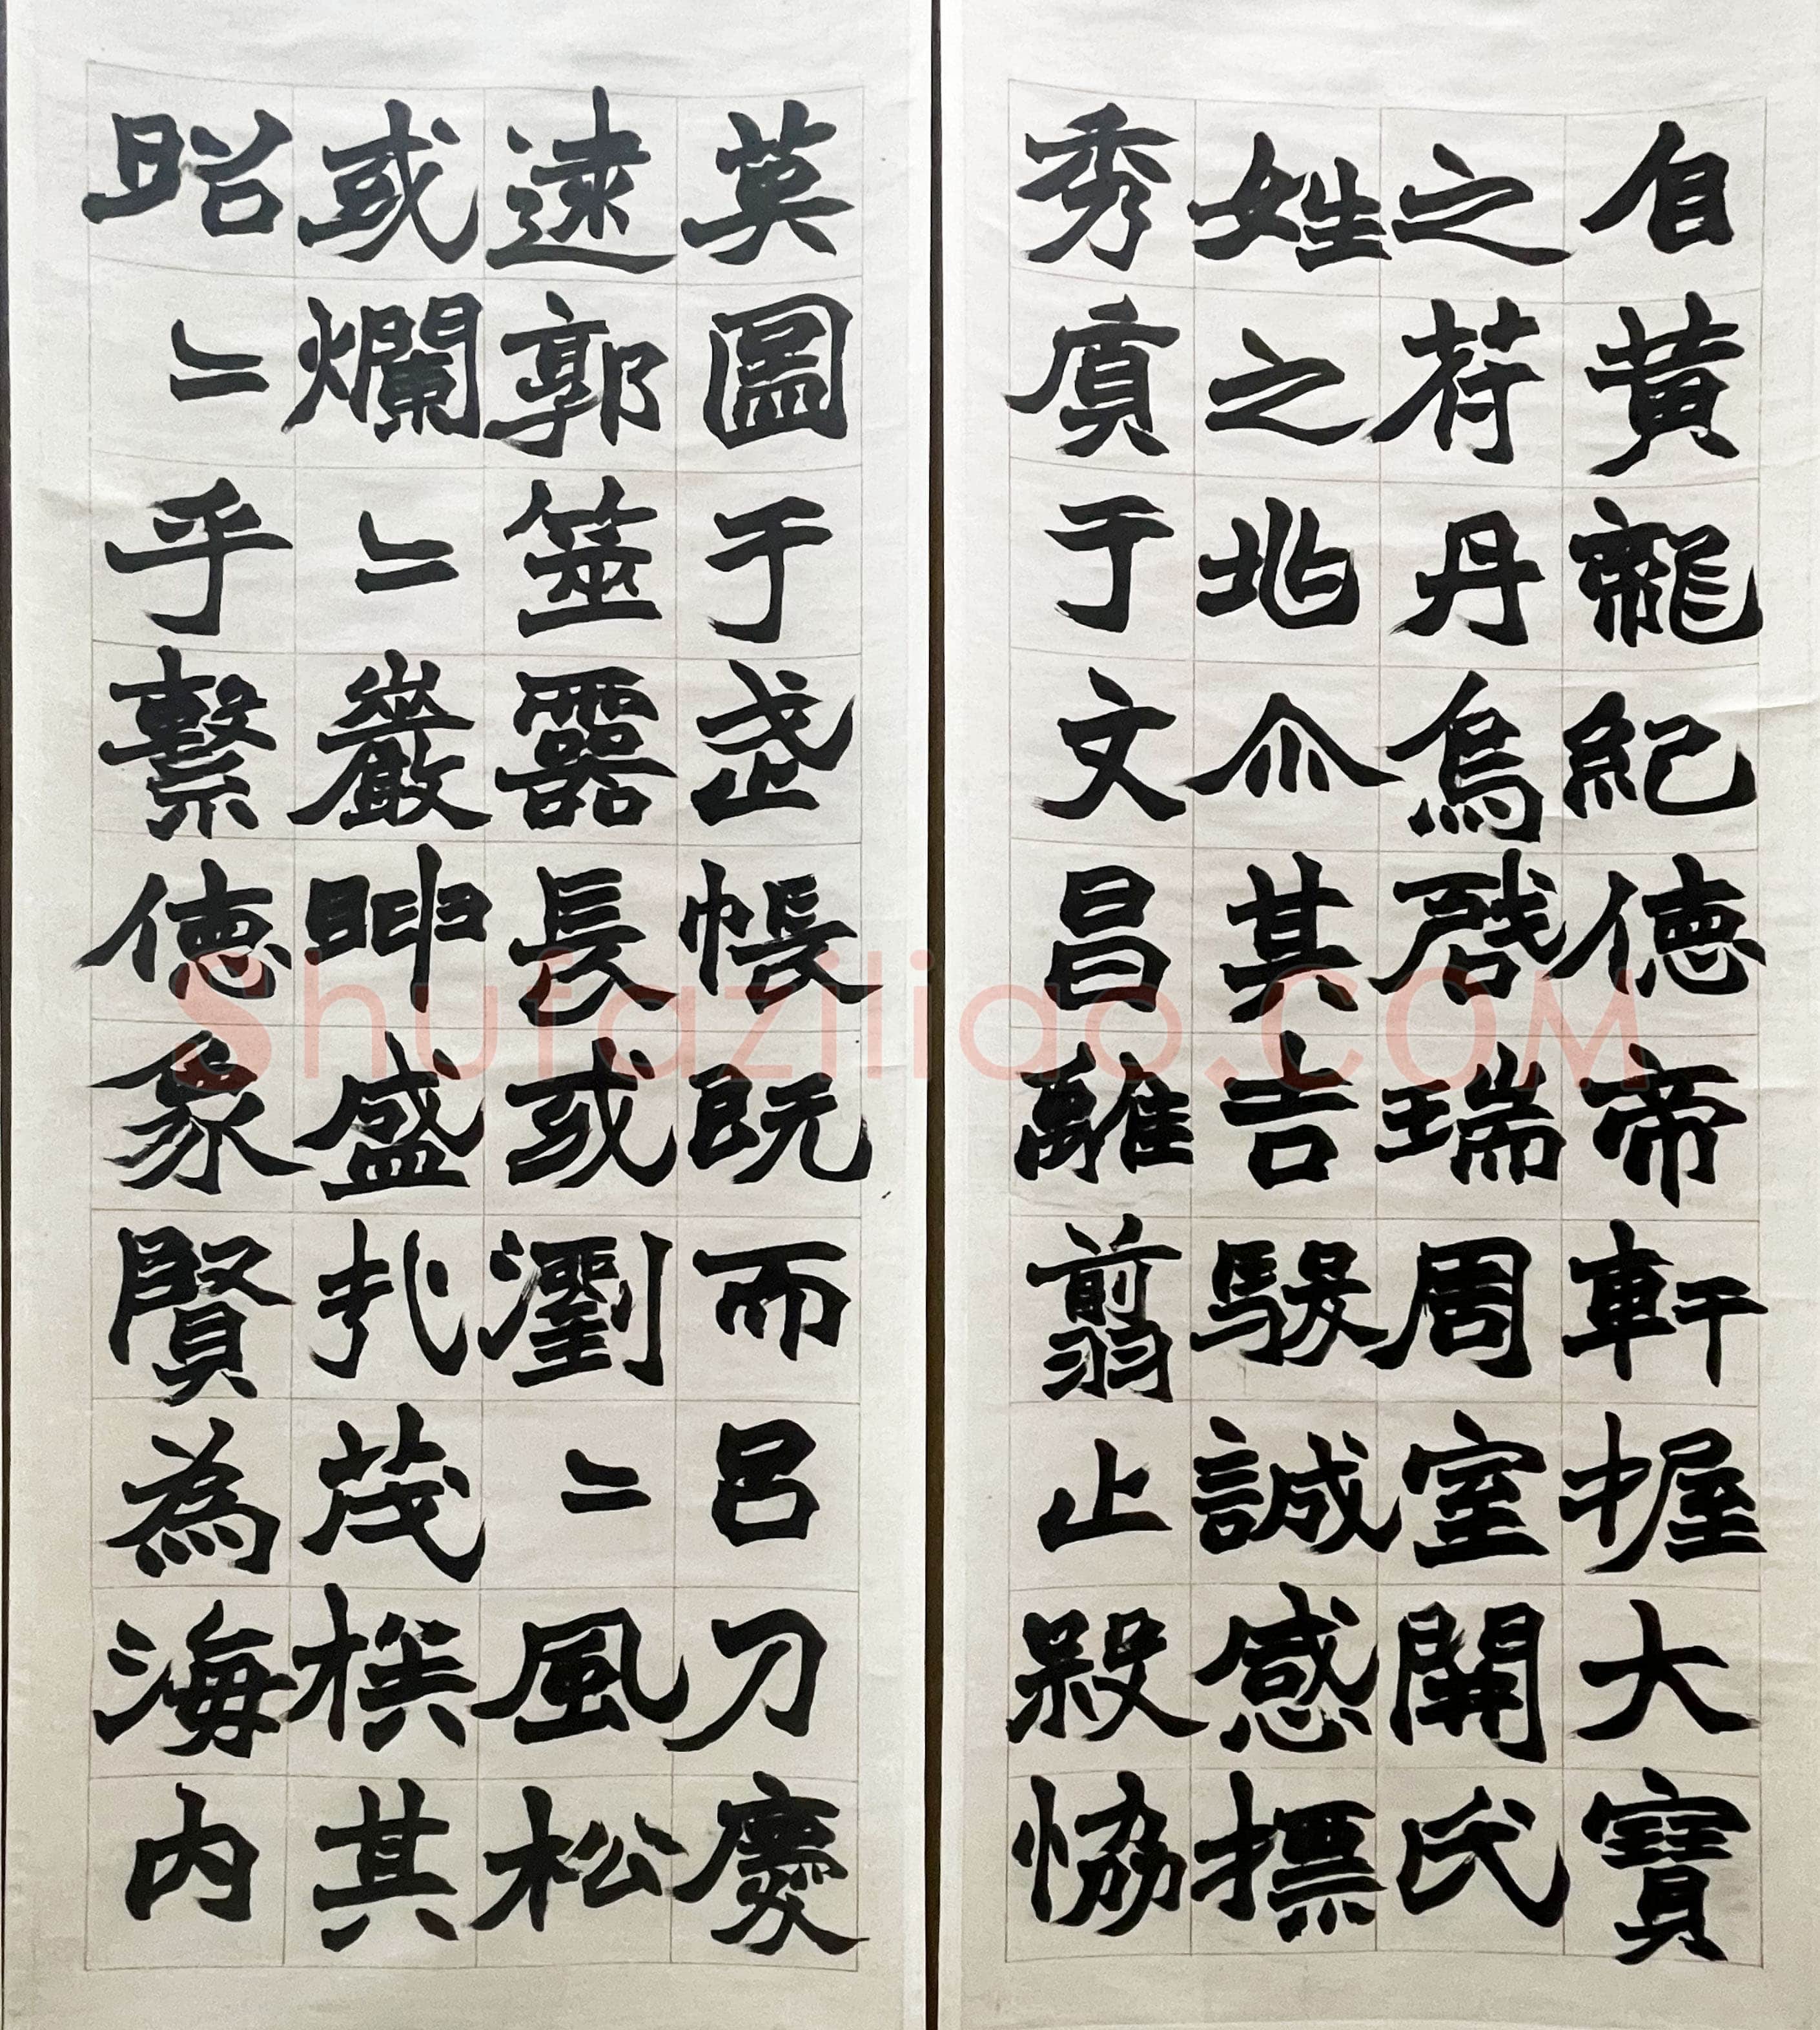 自黃龍紀德帝軒握大寶
之符丹烏啓瑞周室開氏
姓之兆其吉駸誠感摽
秀于文昌離翦止殺恊
英圖于武帳既而呂刀慶
逮郭筮靈長或瀏〻風松
或爛〻巖眒盛哉茂撰其
昭〻乎繫德象賢為海内
Shufaziliao.COM